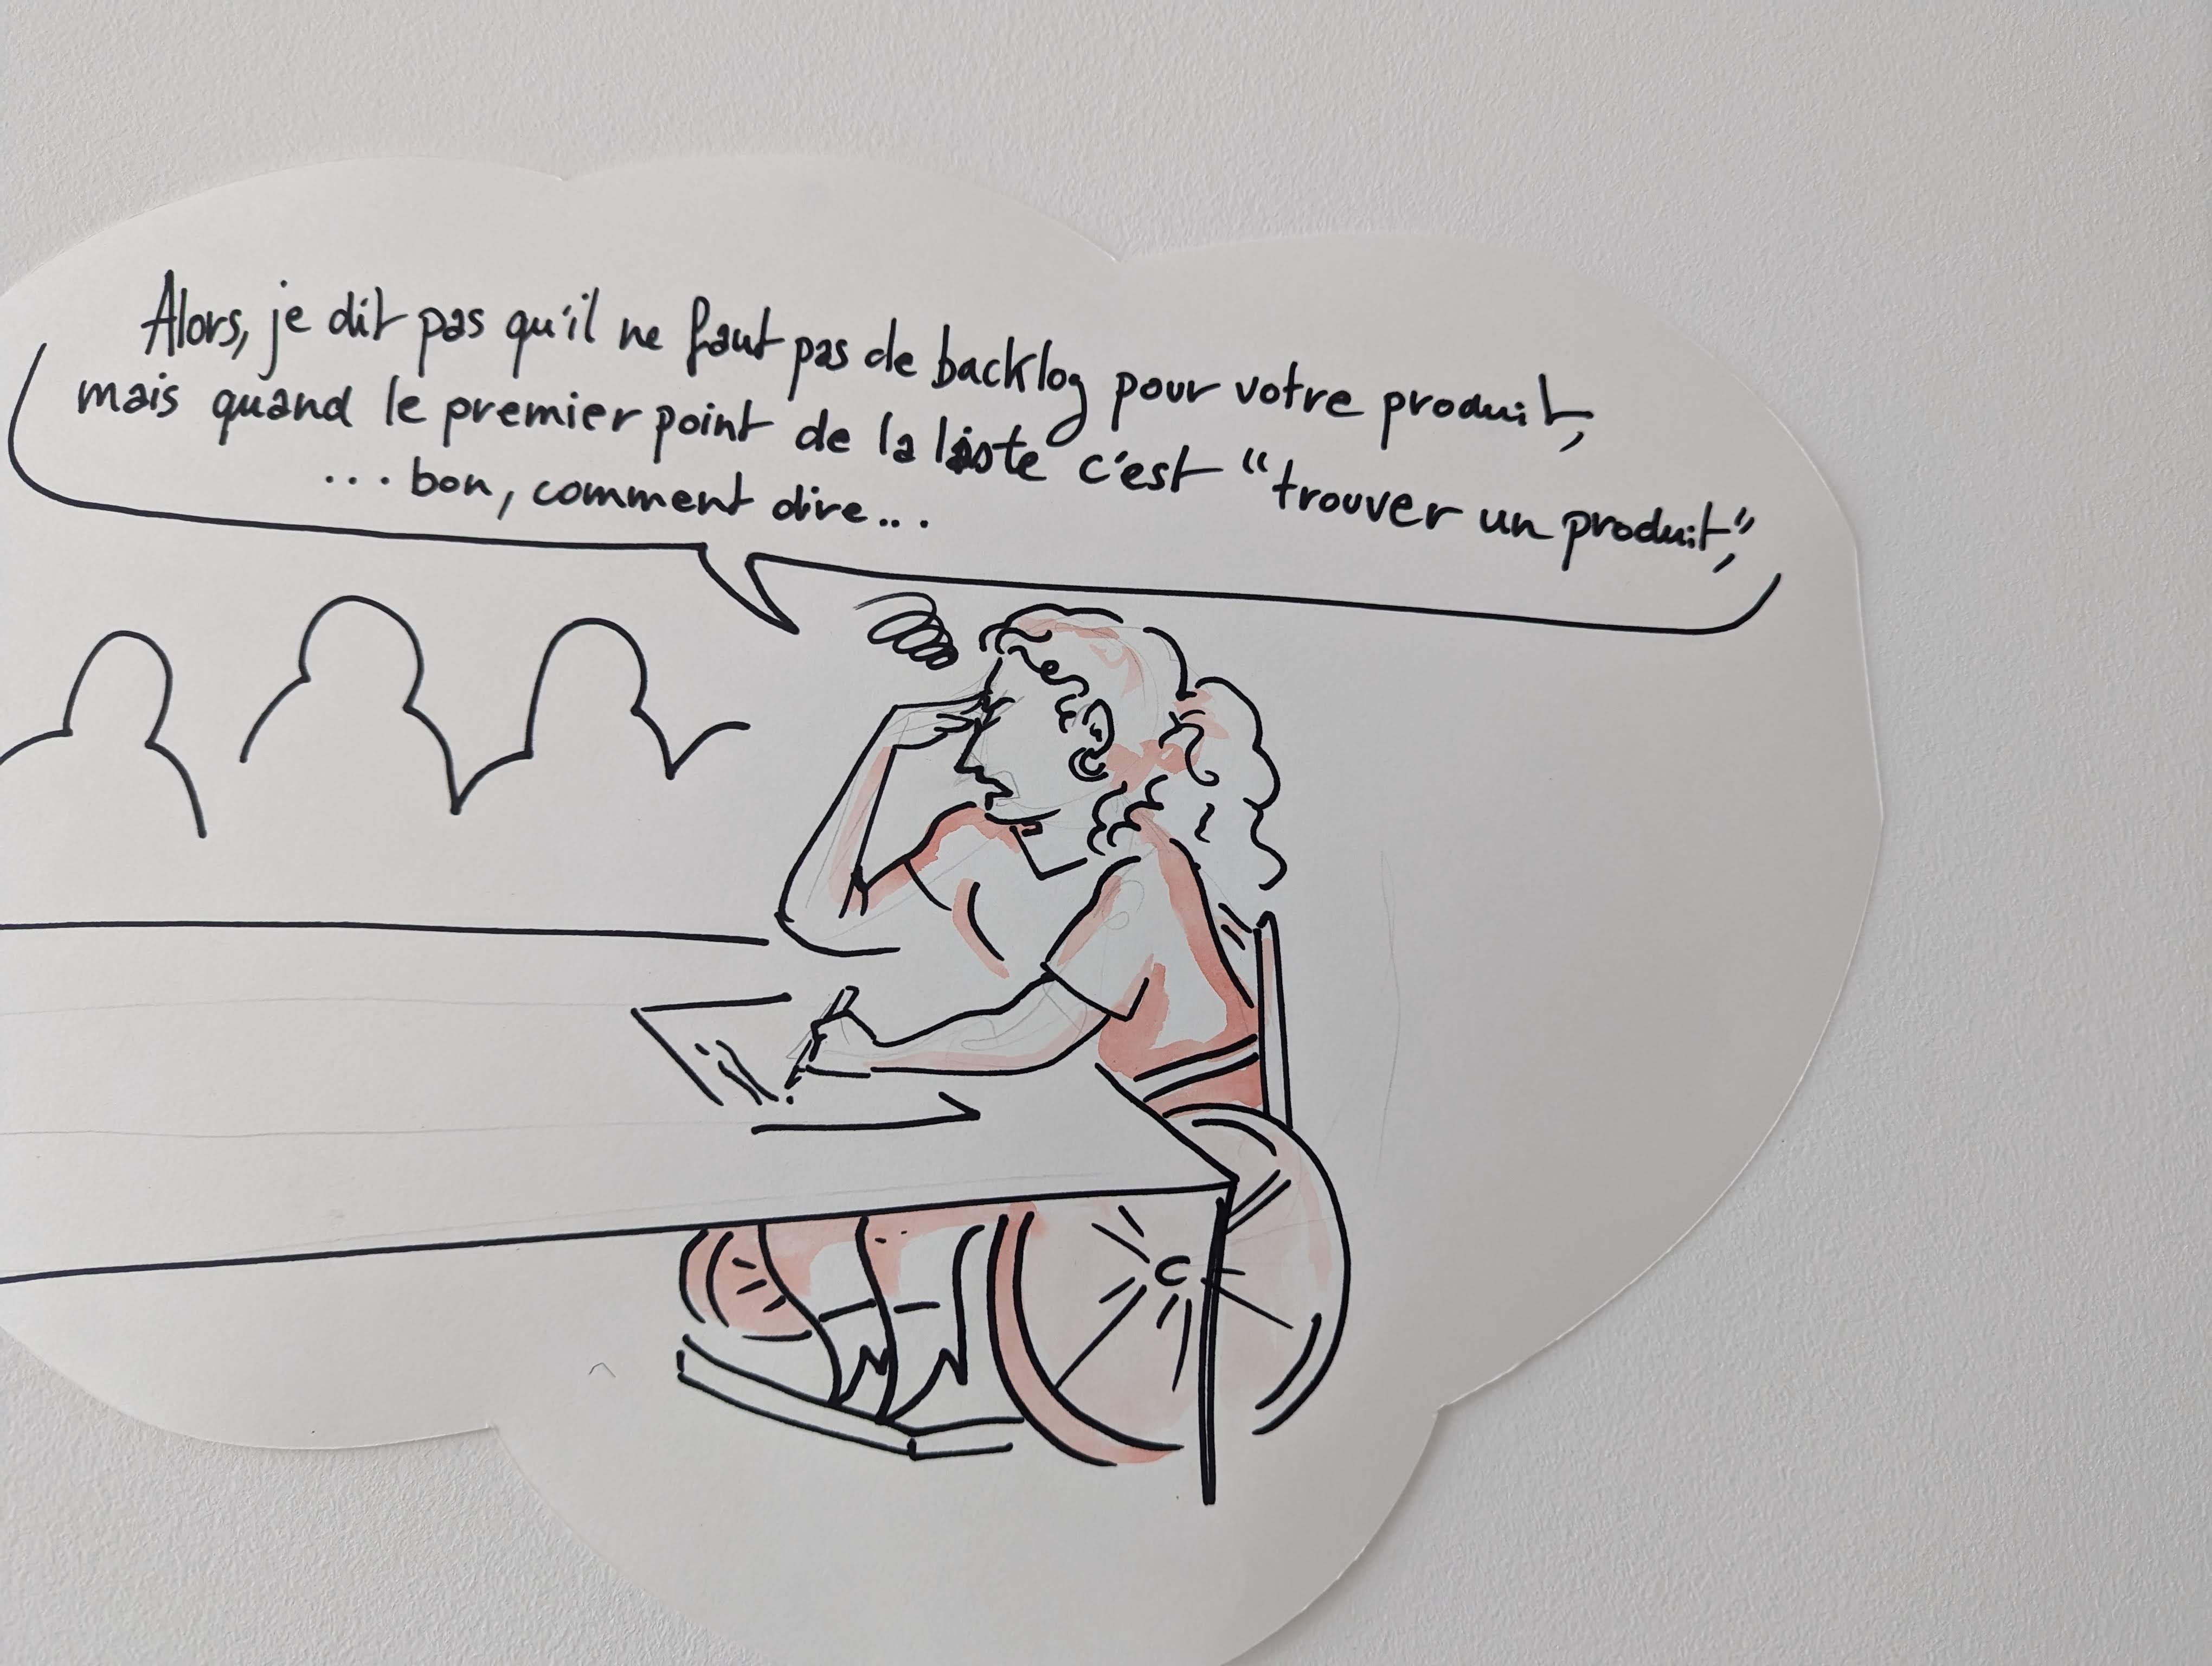 Alors, je dit pas qu'il ne faut pas de backlog pour votre produit,
mais quand le premier point de la liste c'est "trouver un produit",
...bon, comment dire...